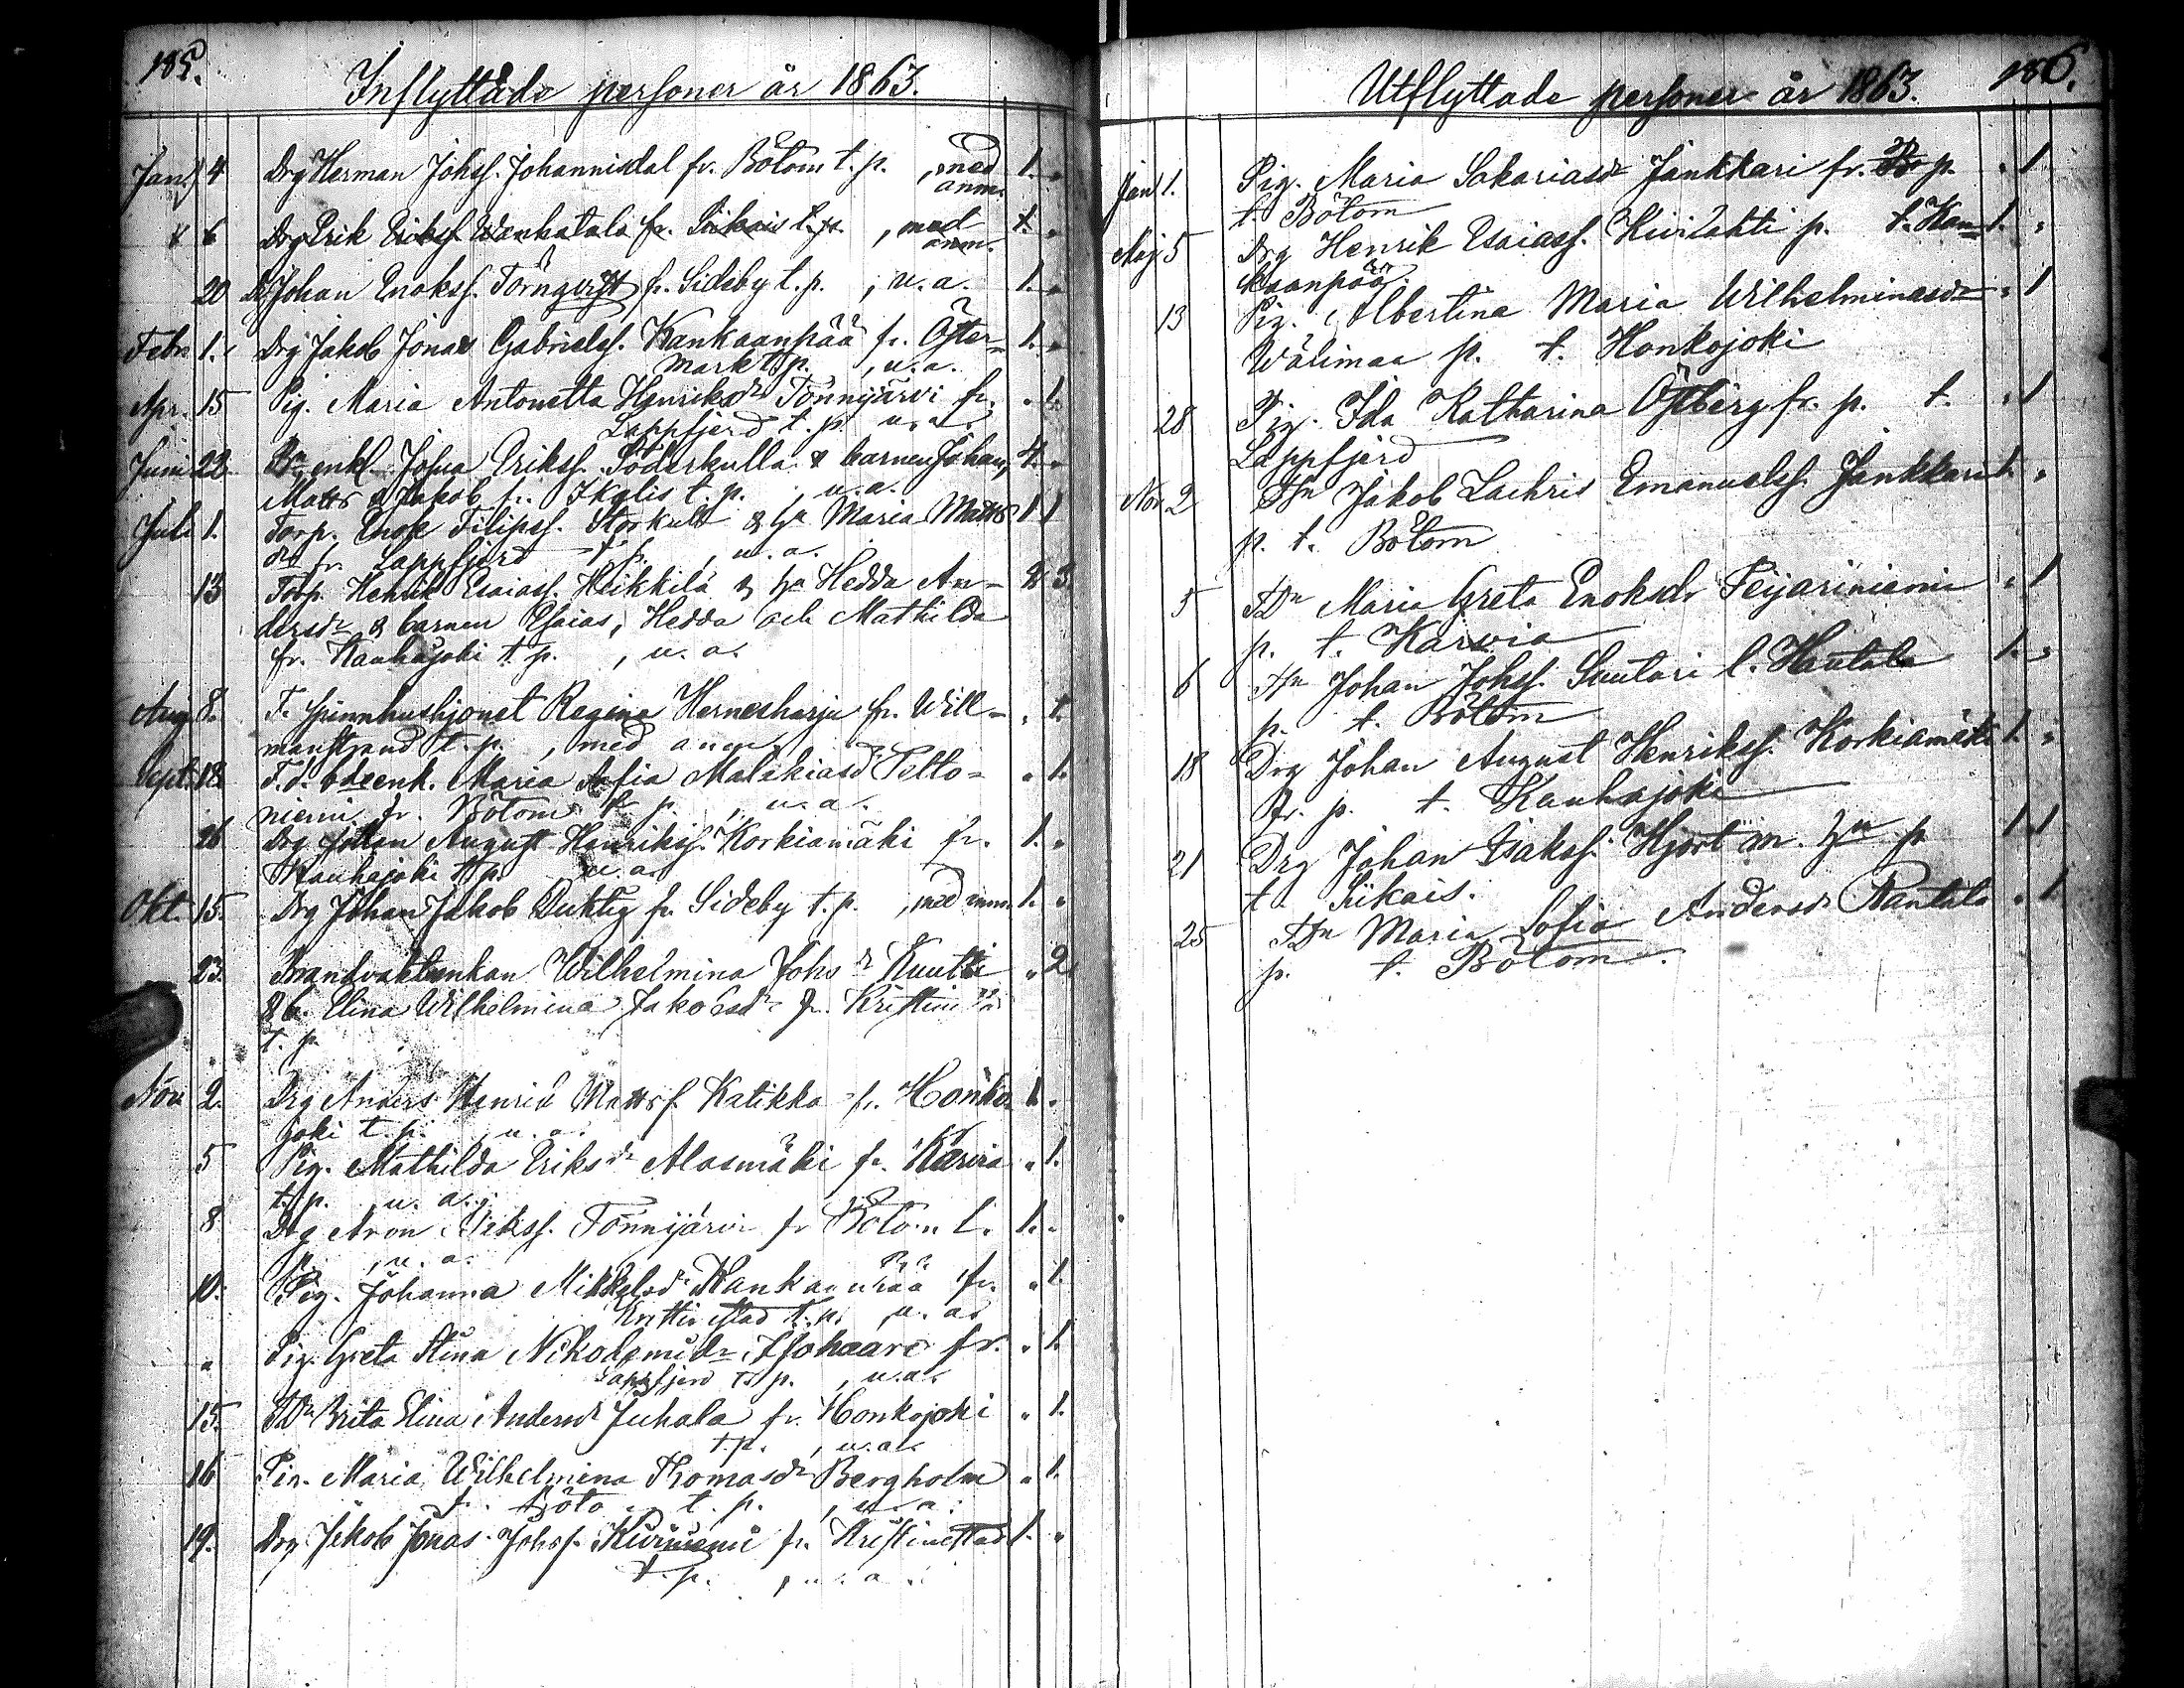 185.
Inflyttade personer år 1863.
Jan. 4 Drg Herman Johss. Johannisdal fr. Bötom t. p. , med 1. "
anm.
" 6 Drg Erik Erikss. Wanhatalo fr. Siikais t. p. , med 1. "
anm.
20 Drg Johan Enokss. Törnqvist fr. Sideby t. p. , u. a. 1. "
Febr. 1. Drg Jakob Jonas Gabrielss. Kankaanpää fr. Öster- 1. "
mark t. p. , u. a.
Apr. 15 Pig. Maria Antonetta Henriksdr Tönnijärvi fr. " 1.
Lappfjerd t. p. u. a.
Juni 22 enkl. Josua Erikss. Söderkulla & barnen Johan, 4. "
Matts & Jakob fr. Ikalis t. p. , u. a.
Juli 1. Torp. Enok Filipss. Storkull & hu Maria Matts 1 1
dr fr. Lappfjerd t. p. , u. a.
13 Torp. Henrik Esaiass. Heikkilä & hu Hedda An- 2 3.
dersdr & barnen Esaias, Hedda och Mathilda
fr. Kauhajoki t. p. , u. a.
Aug. 8. F. spinnhushjonet Regina Hernesharju fr. Will- " 1.
manstrand t. p. , med anm.
Sept. 18 F.d. bdeenk. Maria Sofia Malakiasdr Pelto- " 1.
niemi fr. Bötom t. p. , u. a.
26 Drg Johan August Henrikss. Korkiamäki fr. 1. "
Kauhajoki t. p. u. a.
Okt. 15. Drg Johan Jakob Duktig fr. Sideby t. p. , med anm. 1. "
23. Wilhelmina Johsdr Kuutti " 2
& b. Elina Wilhelmina Jakobsdr fr.
t. p.
Nov. 2. Drg Anders Henrik Mattss. Katikka fr. Honko- 1. "
joki t. p. , u. a.
5 Pig. Mathilda Eriksdr Alasmäki fr. Karvia " 1.
t. p. u. a.
8 Drg Aron Tönnijärvi fr Bötom t. 1. "
p. , u. a.
10. Pig. Johanna Mikkelsdr Kankaanpää fr. " 1.
Kristinestad t. p. u. a.
" Pig. Greta Stina Nikodemidr fr. " 1.
Lappfjerd t. p. , u. a.
15. TDr Brita Elina Andersdr Juhala fr. Honkojoki " 1.
t. p. , u. a.
16 Pig. Maria Wilhelmina Thomasdr Bergholm " 1.
fr. Bötom t. p. , u. a.
19. Drg Jakob Jonas Johss. Kiviniemi fr. Kristinestad 1. "
t. p. , u. a.
186.
Utflyttade personer år 1863.
Jan. 1. Pig. Maria Sakariasdr Jankkari fr. p. " 1
t. Bötom
Maj 5 Drg Henrik Esaiass. Kivilahti p. t. Kan- 1. "
kaanpää
13 Pig. Albertina Maria Wilhelminasdr " 1
Wälimaa p. t. Honkojoki
28 Pig. Ida Katharina Östberg fr. p. t. " 1
Lappfjerd
Nov. 2 Jakob Zachris Emanuelss. Jankkari 1. "
p. t. Bötom
5 TDr Maria Greta Enoksdr Peijariniemi " 1
p. t. Karvia
6 Johan Johss. Suutari l. Hautala 1. "
p. t. Bötom
18 Drg Johan August Henrikss. Korkiamäki 1. "
fr. p. t. Kauhajoki
21 Drg Johan Isakss. Hjort m. hu p 1 1
t Siikais.
25 TDr Maria Sofia Andersdr Rantala " 1
p. t. Bötom.